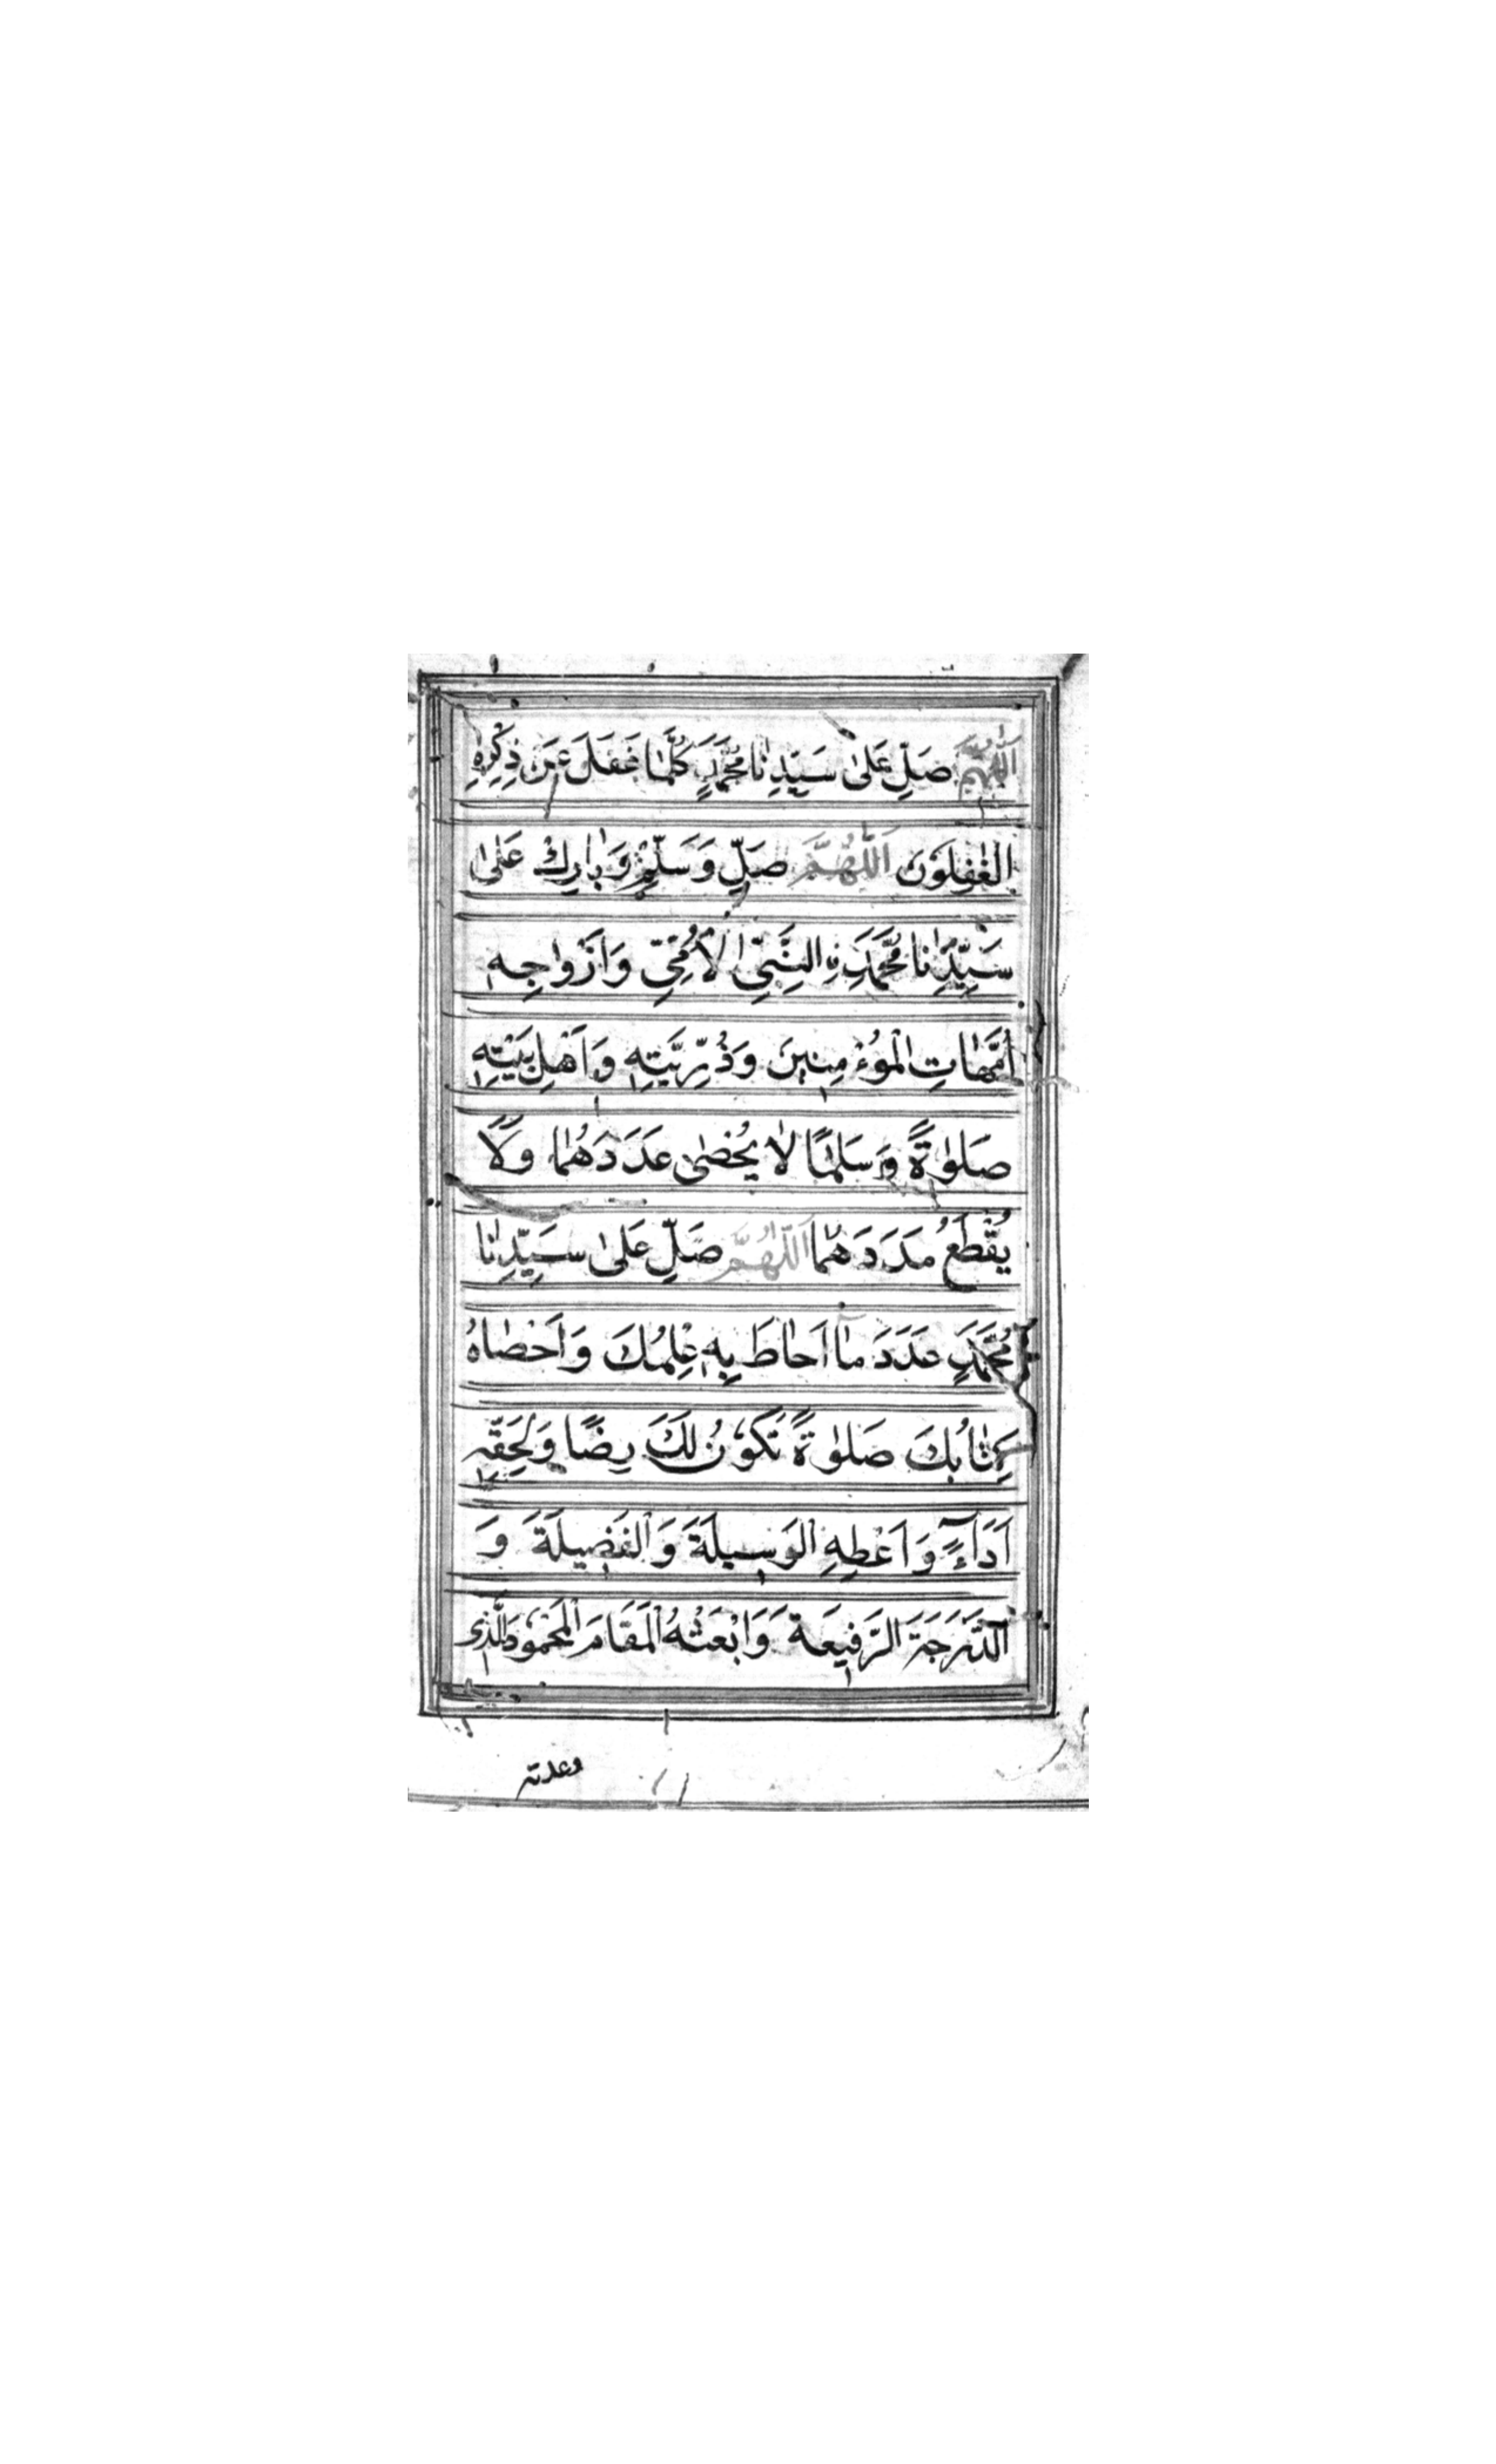 اَللّٰهُمَّ صَلِّ عَلٰى سَيِّدِنَا مُحَمَّدٍ كُلَّمَا غَفَلَ عَنْ ذِكْرِهِ
الْغٰفِلُوْنَ اَللّٰهُمَّ صَلِّ وَسَلِّمْ وَبَارِكْ عَلٰى
سَيِّدِنَا مُحَمَّدِ نِ النَّبِيِّ الْاُمِّيِّ وَاَزْوَاجِهٖ
اُمَّهَاتِ الْمُؤْمِنِيْنَ وَذُرِّيَّتِهٖ وَاَهْلِ بَيْتِهٖ
صَلٰوةً وَسَلَامًا لَا يُحْصٰى عَدَدَهُمَا وَلَا
يُقْطَعُ مَدَدَهُمَا اَللّٰهُمَّ صَلِّ عَلٰى سَيِّدِنَا
مُحَمَّدٍ عَدَدَ مَا اَحَاطَ بِهٖ عِلْمُكَ وَاَحْصَاهُ
كِتَابُكَ صَلٰوةً تَكُوْنُ لَكَ رِضًا وَلِحَقِّهٖ
اَدَآءً وَاَعْطِهِ الْوَسِيلَةَ وَالْفَضِيلَةَ وَ
الدَّرَجَةَ الرَّفِيعَةَ وَابْعَثْهُ الْمَقَامَ الْمَحْمُوْدَ الَّذِي
وعدته